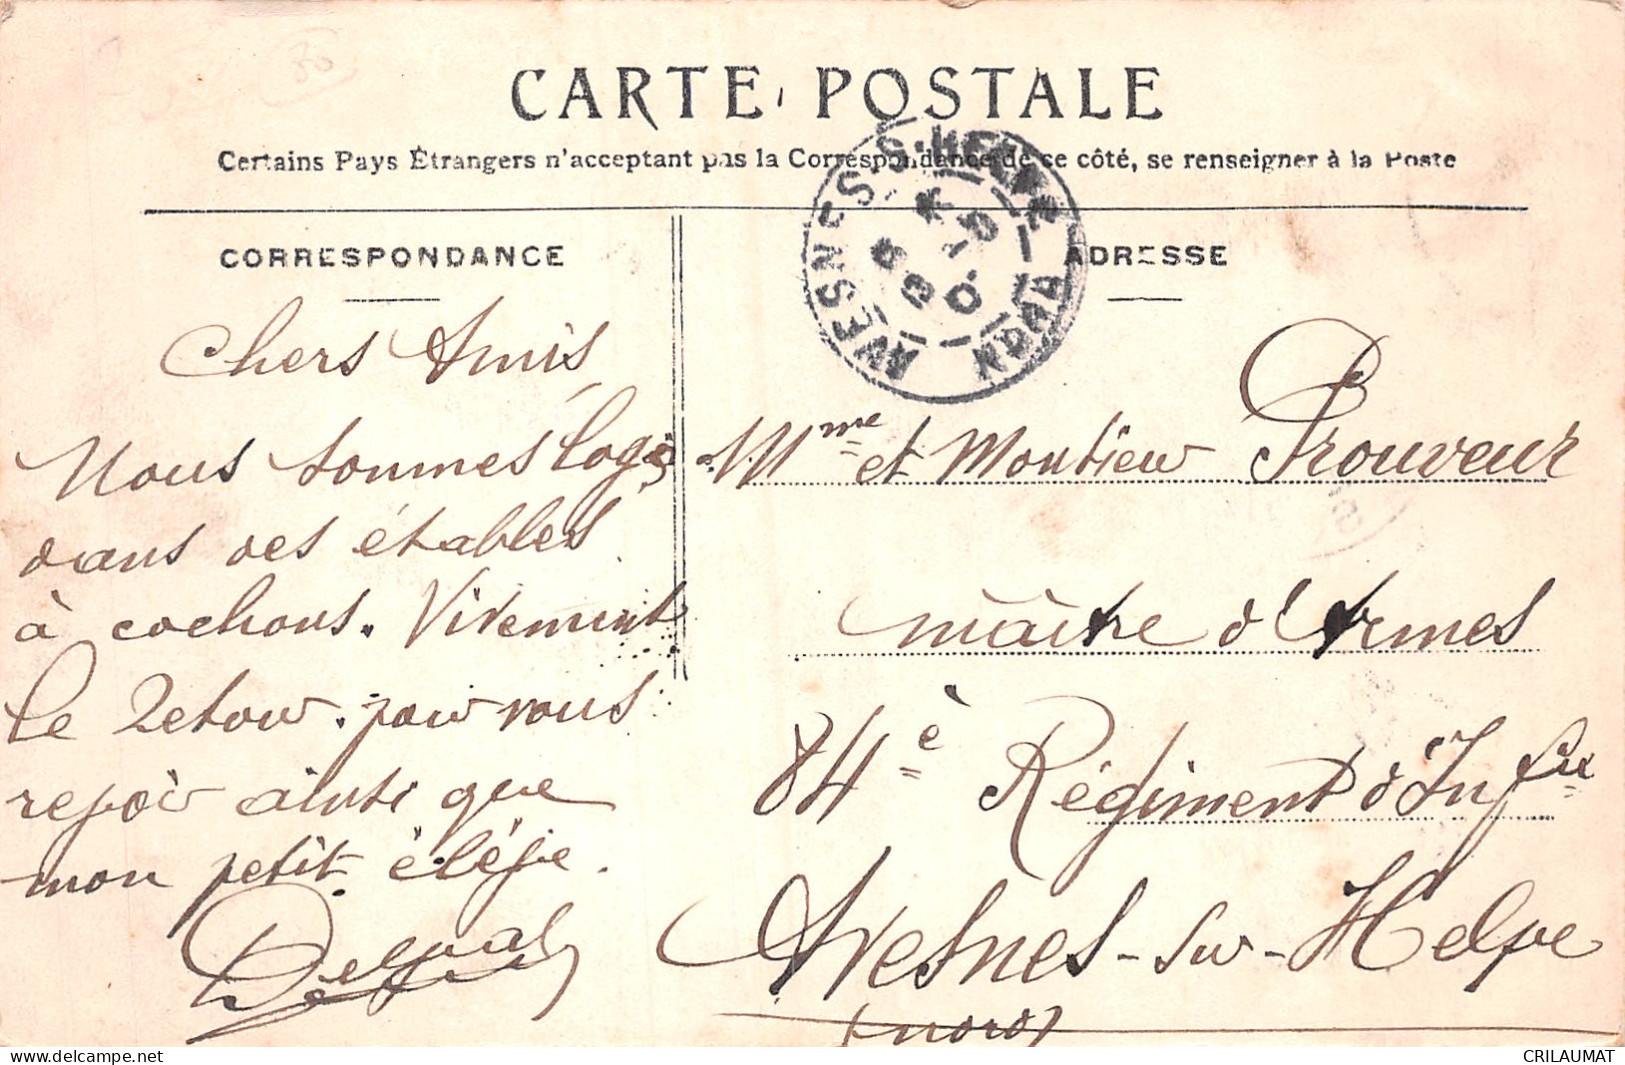 CARTE POSTALE
Certains Pays Étrangers n'acceptant pas la Correspondance de ce côté, se renseigner à la Poste
CORRESPONDANCE
Chers Amis
Nous sommes logés
dans des étables
à cochons. Vivement
le retour. pour vous
revoir ainsi que
mon petit élève.
Delgral
ADRESSE
AVESNES-S-HELPE
NORD
Mme et Monsieur Prouveur
maître d'Armes
84è Régiment d'Infrie
Avesnes-sur-Helpe
(Nord)
delcampe.net
CRILAUMAT